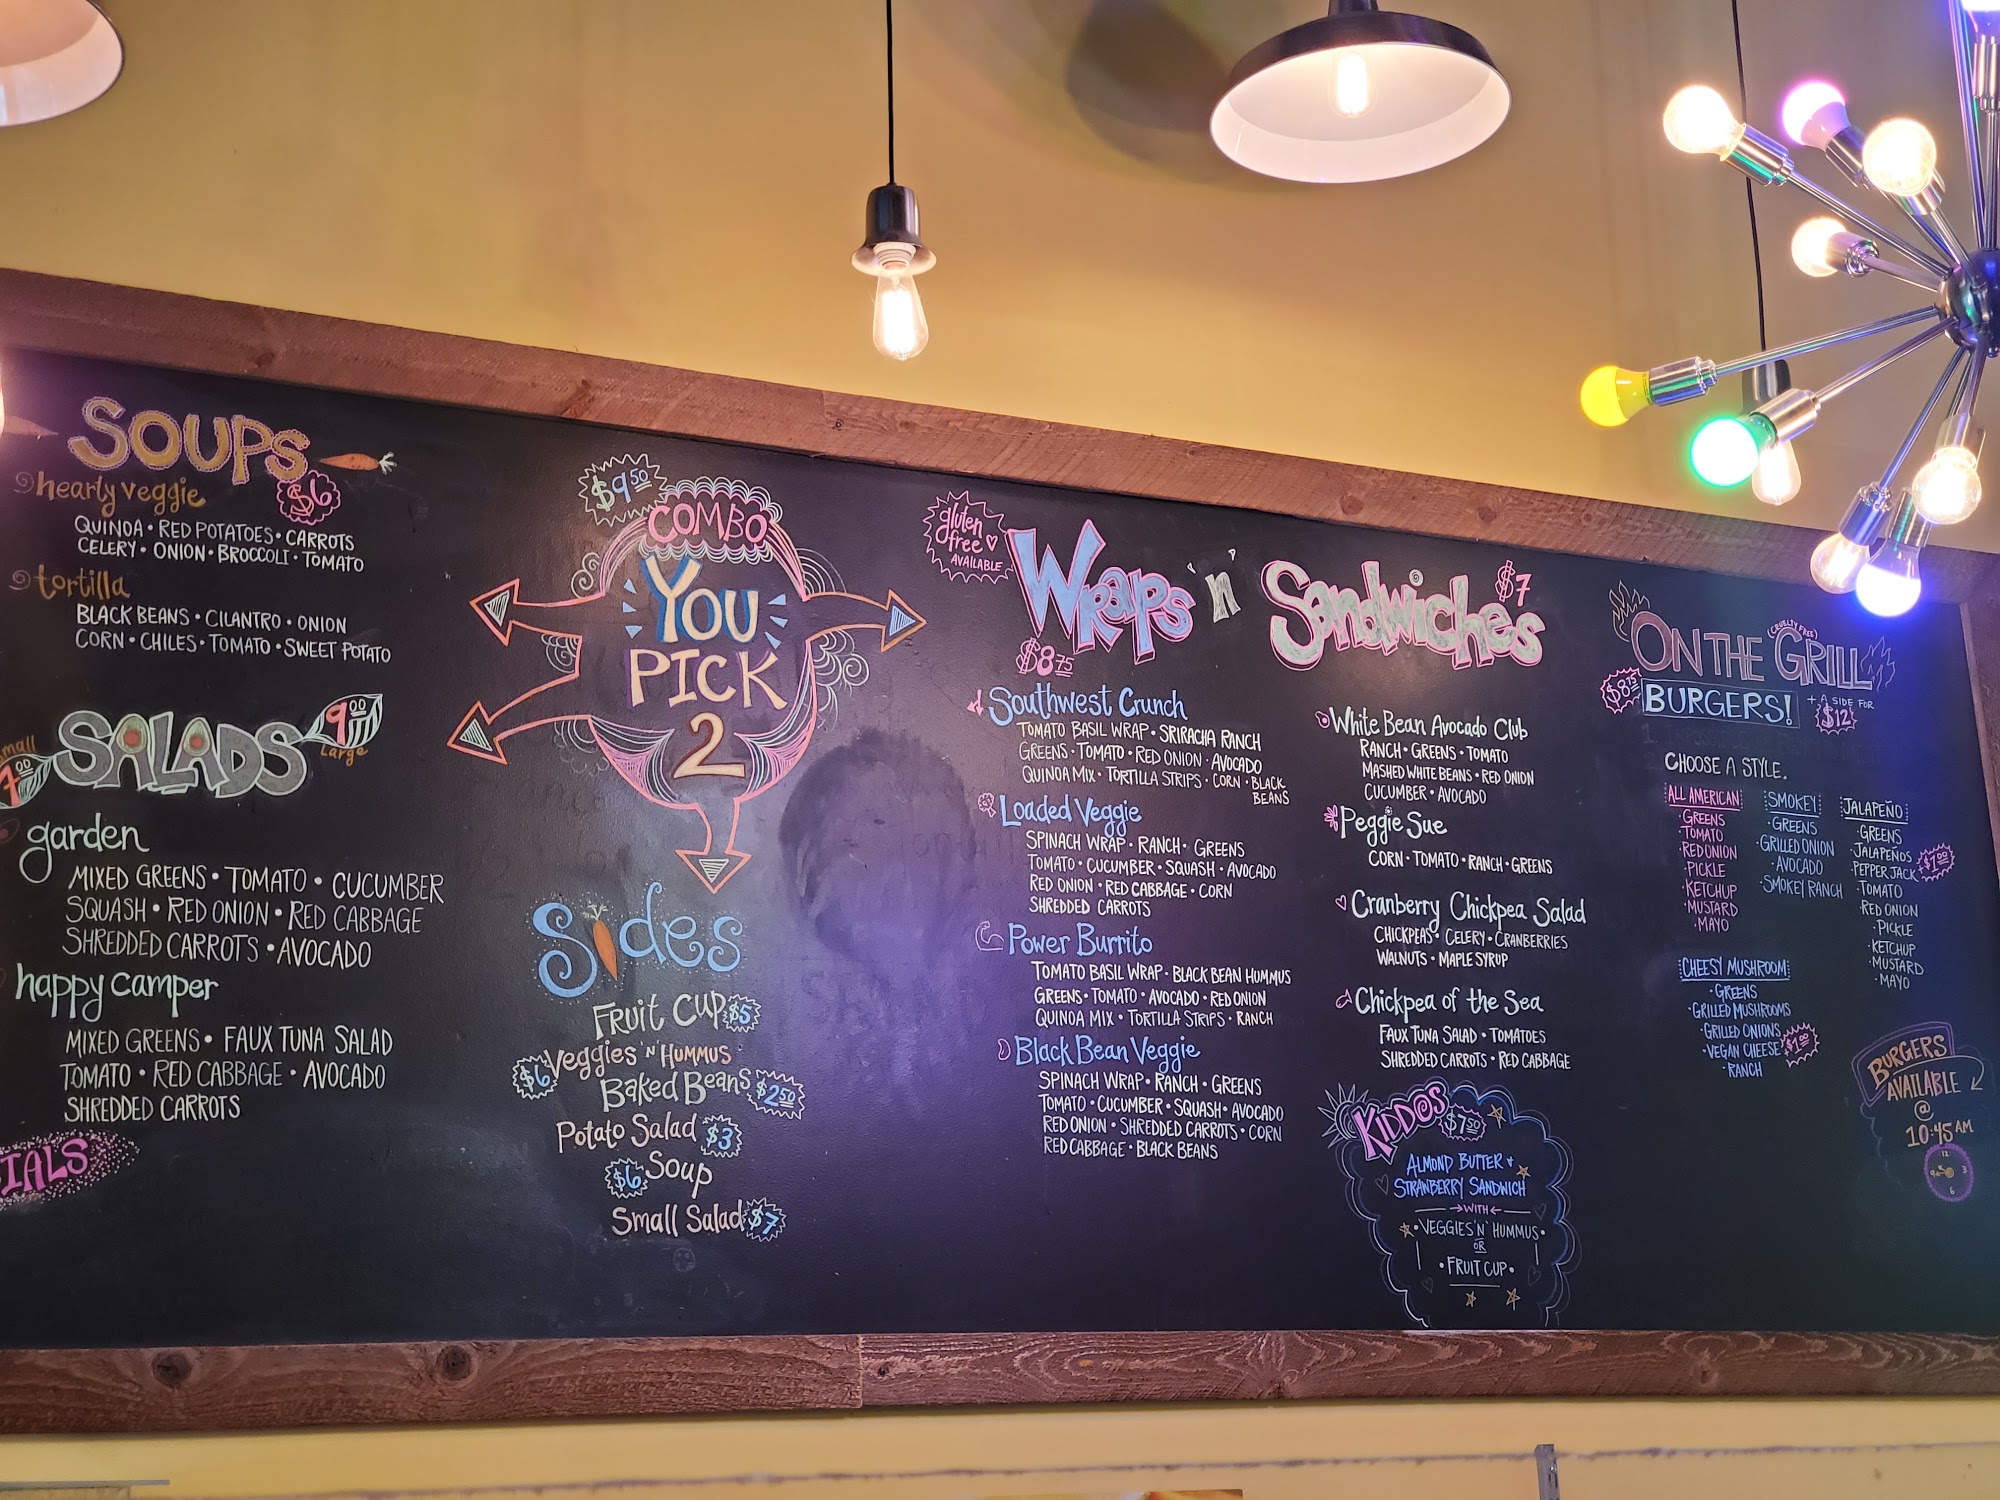 SOUPS
$6
hearty veggie
QUINOA • RED POTATOES • CARROTS
CELERY • ONION • BROCCOLI • TOMATO
tortilla
BLACK BEANS • CILANTRO • ONION
CORN • CHILES • TOMATO • SWEET POTATO
SALADS
small
7.00
9.00
Large
garden
MIXED GREENS • TOMATO • CUCUMBER
SQUASH • RED ONION • RED CABBAGE
SHREDDED CARROTS • AVOCADO
happy camper
MIXED GREENS • FAUX TUNA SALAD
TOMATO • RED CABBAGE • AVOCADO
SHREDDED CARROTS
IALS
$9.50
COMBO
YOU
PICK
2
Sides
FRUIT CUP $5
$6 VEGGIES 'N' HUMMUS
BAKED BEANS $2.50
POTATO SALAD $3
$6 SOUP
SMALL SALAD $7
gluten
free
AVAILABLE
WRAPS 'n' SANDWICHES
$8.75
$7
Southwest Crunch
TOMATO BASIL WRAP • SRIRACHA RANCH
GREENS • TOMATO • RED ONION • AVOCADO
QUINOA MIX • TORTILLA STRIPS • CORN • BLACK
BEANS
Loaded Veggie
SPINACH WRAP • RANCH • GREENS
TOMATO • CUCUMBER • SQUASH • AVOCADO
RED ONION • RED CABBAGE • CORN
SHREDDED CARROTS
Power Burrito
TOMATO BASIL WRAP • BLACK BEAN HUMMUS
GREENS • TOMATO • AVOCADO • RED ONION
QUINOA MIX • TORTILLA STRIPS • RANCH
Black Bean Veggie
SPINACH WRAP • RANCH • GREENS
TOMATO • CUCUMBER • SQUASH • AVOCADO
RED ONION • SHREDDED CARROTS • CORN
RED CABBAGE • BLACK BEANS
White Bean Avocado Club
RANCH • GREENS • TOMATO
MASHED WHITE BEANS • RED ONION
CUCUMBER • AVOCADO
Peggie Sue
CORN • TOMATO • RANCH • GREENS
Cranberry Chickpea Salad
CHICKPEAS • CELERY • CRANBERRIES
WALNUTS • MAPLE SYRUP
Chickpea of the Sea
FAUX TUNA SALAD • TOMATOES
SHREDDED CARROTS • RED CABBAGE
KIDDOS $7.50
ALMOND BUTTER +
STRAWBERRY SANDWICH
WITH
• VEGGIES 'N' HUMMUS •
OR
• FRUIT CUP •
(CRUELTY FREE)
ON THE GRILL
$8.75
BURGERS!
+ A SIDE FOR
$12
CHOOSE A STYLE.
ALL AMERICAN
• GREENS
• TOMATO
• RED ONION
• PICKLE
• KETCHUP
• MUSTARD
• MAYO
SMOKEY
• GREENS
• GRILLED ONION
• AVOCADO
• SMOKEY RANCH
JALAPEÑO
• GREENS
• JALAPEÑOS
• PEPPER JACK $1.00
• TOMATO
• RED ONION
• PICKLE
• KETCHUP
• MUSTARD
• MAYO
CHEESY MUSHROOM
• GREENS
• GRILLED MUSHROOMS
• GRILLED ONIONS
• VEGAN CHEESE $1.00
• RANCH
BURGERS
AVAILABLE
@
10:45 AM
12
9 3
6